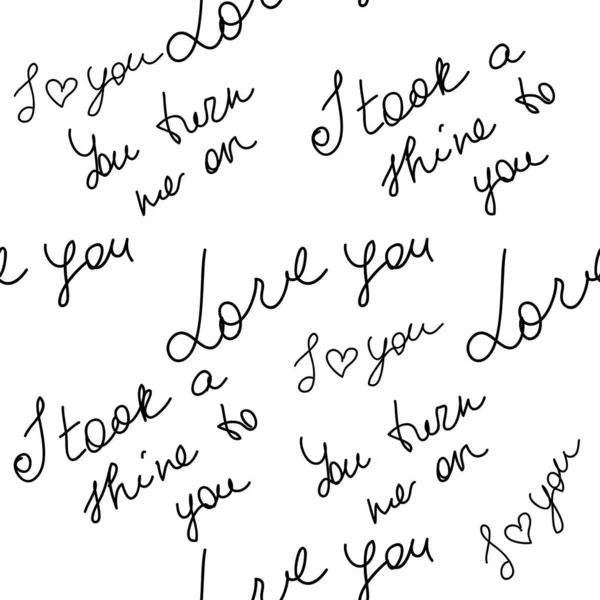 Love
I ♡ you
You turn
me on
I took a
shine to
you
e you
Love you
Love
I ♡ you
I took a
shine to
you
You turn
me on
I ♡ you
Love you